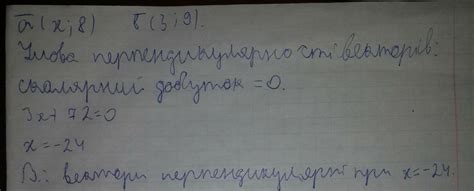 a̅(x; 8) b̅(3; 9).
Умова перпендикулярності векторів:
скалярний добуток =0.
3x+72=0
x=-24
В: вектори перпендикулярні при x=-24.